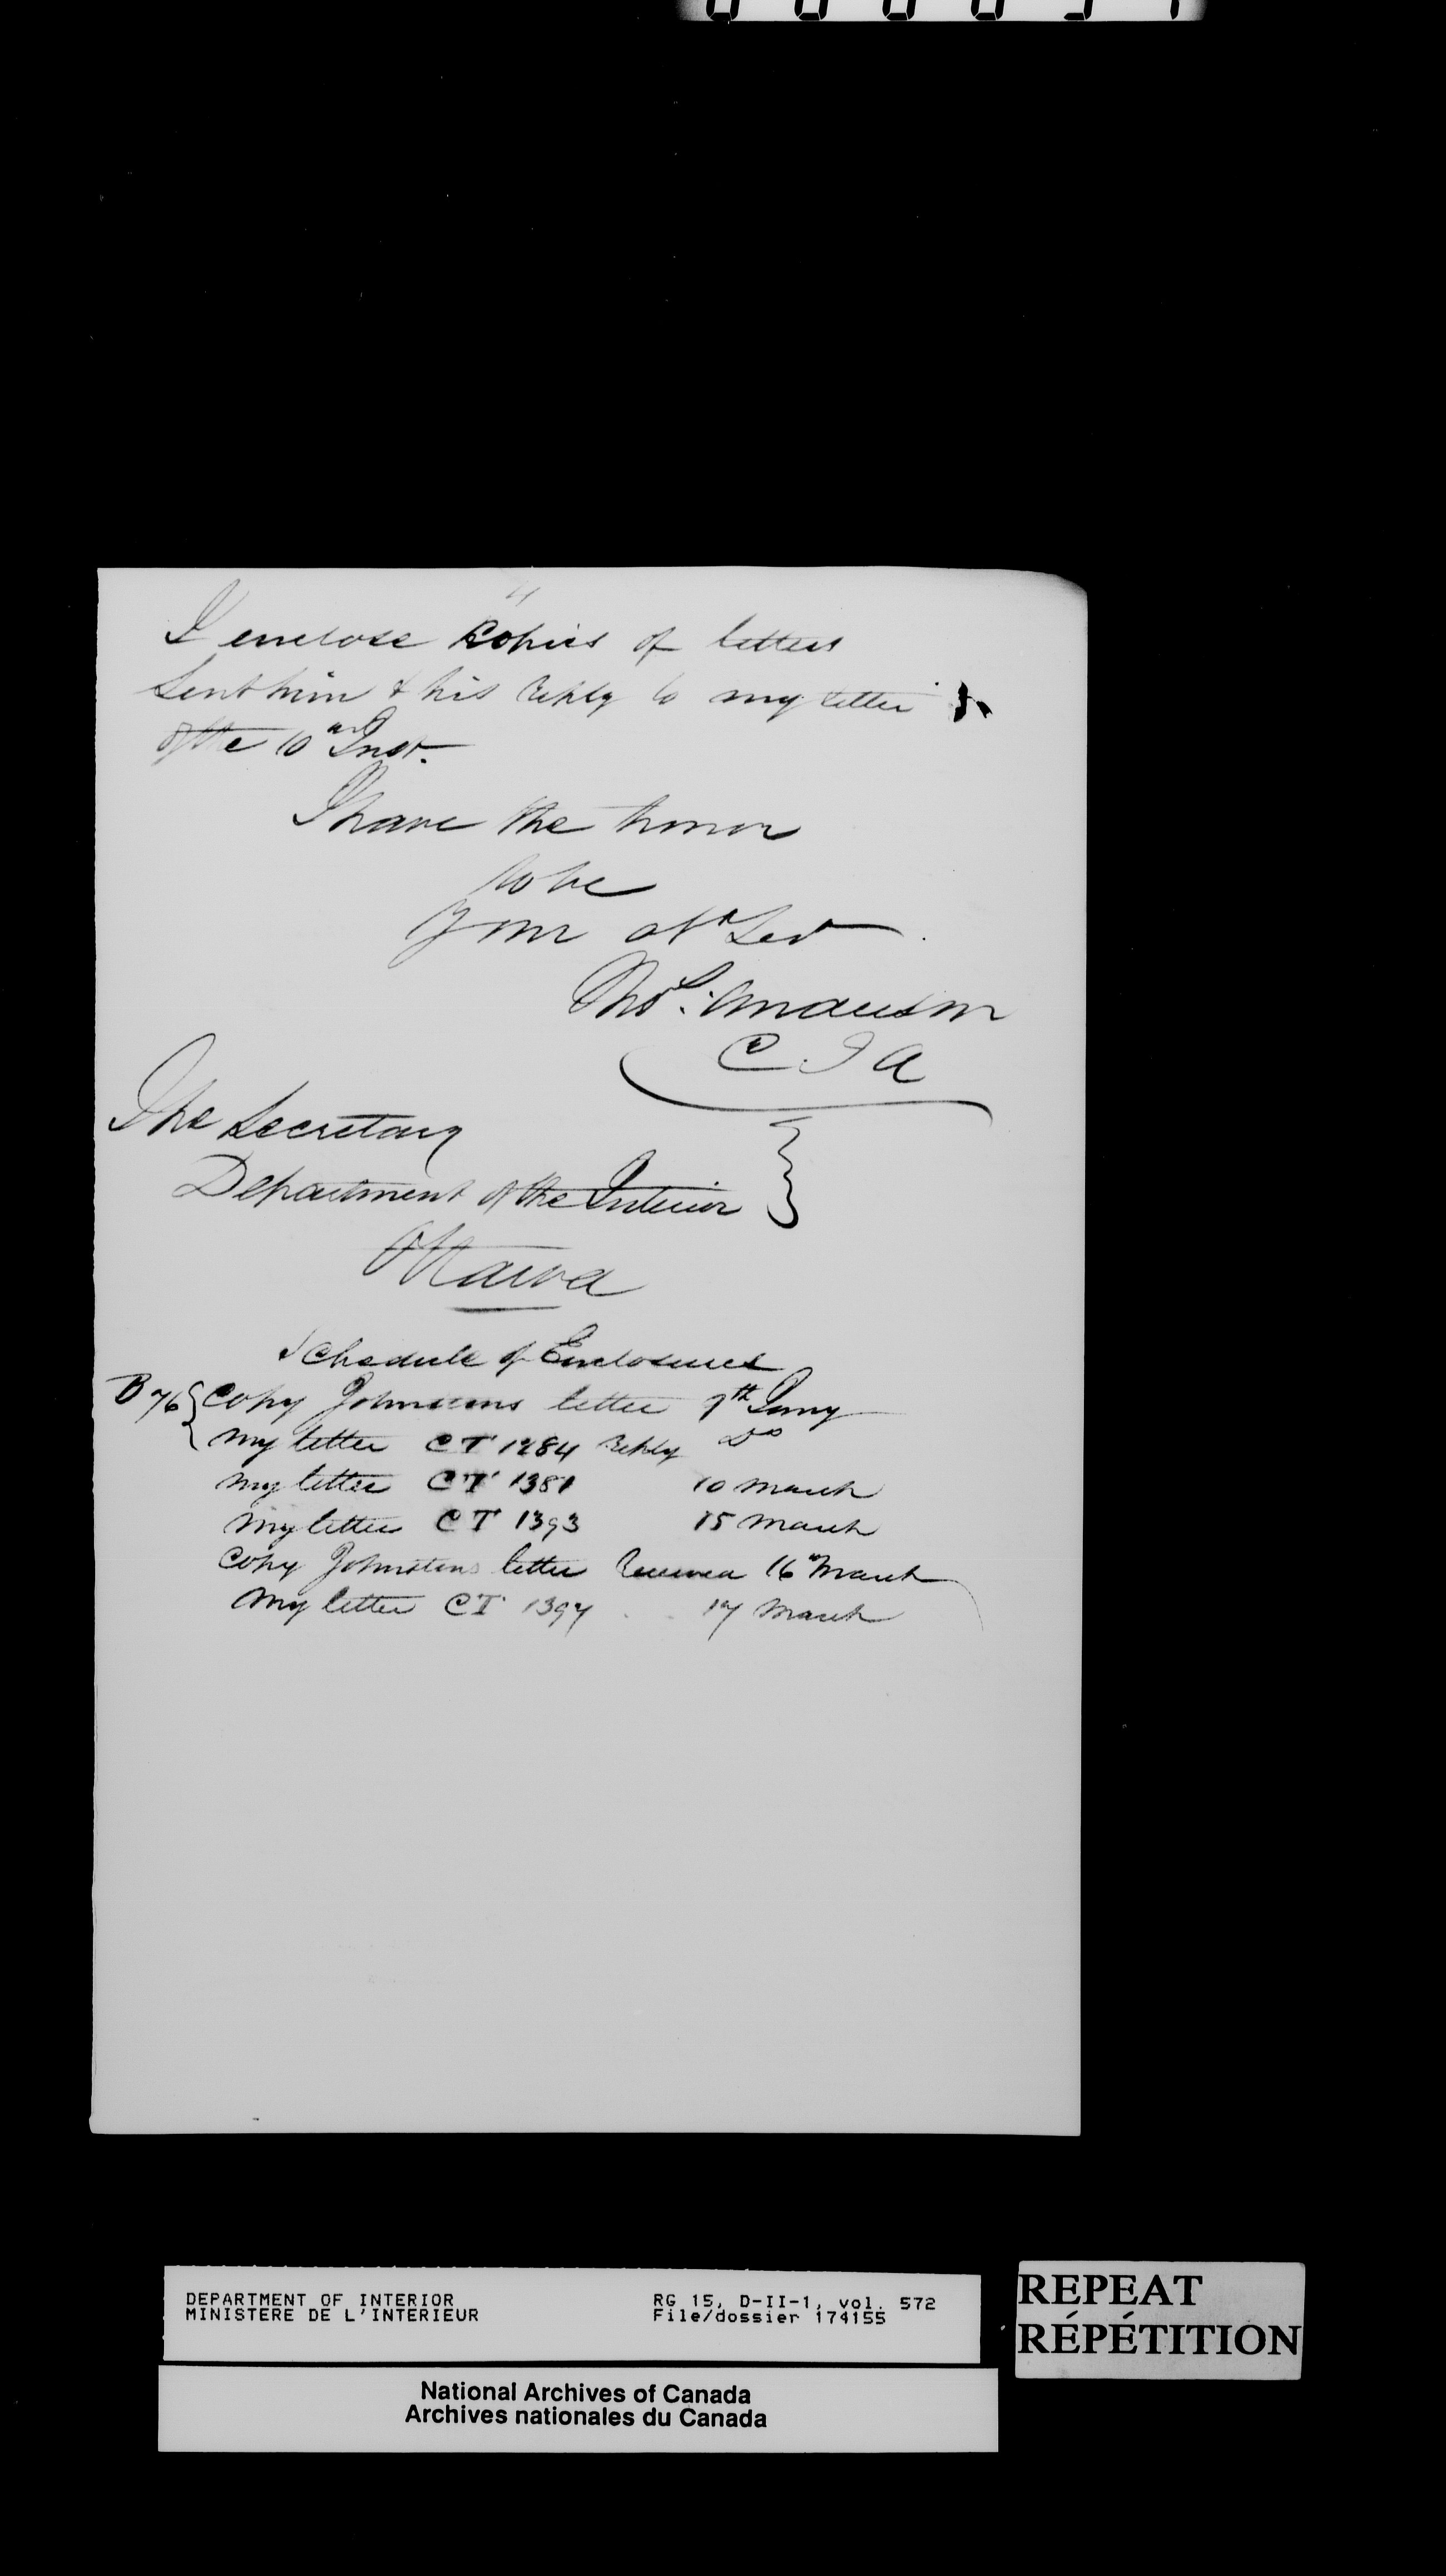 I enclose Copies of letters
Sent him & his reply to my letter
of the 10th Inst.
I have the honor
to be
Your obt Svt
Thos. Anderson
C. I A
The Secretary
Department of the Interior
Ottawa
Schedule of Enclosures
B 76 { Copy Johnstons letter 9th Jany
my letter CT 1284 reply Do
my letter CT 1381 10 March
my letter CT 1393 15 March
Copy Johnstons letter Received 16th March
my letter CT 1397 17 March
DEPARTMENT OF INTERIOR
MINISTERE DE L'INTERIEUR
RG 15, D-II-1, vol. 572
File/dossier 174155
REPEAT
RÉPÉTITION
National Archives of Canada
Archives nationales du Canada